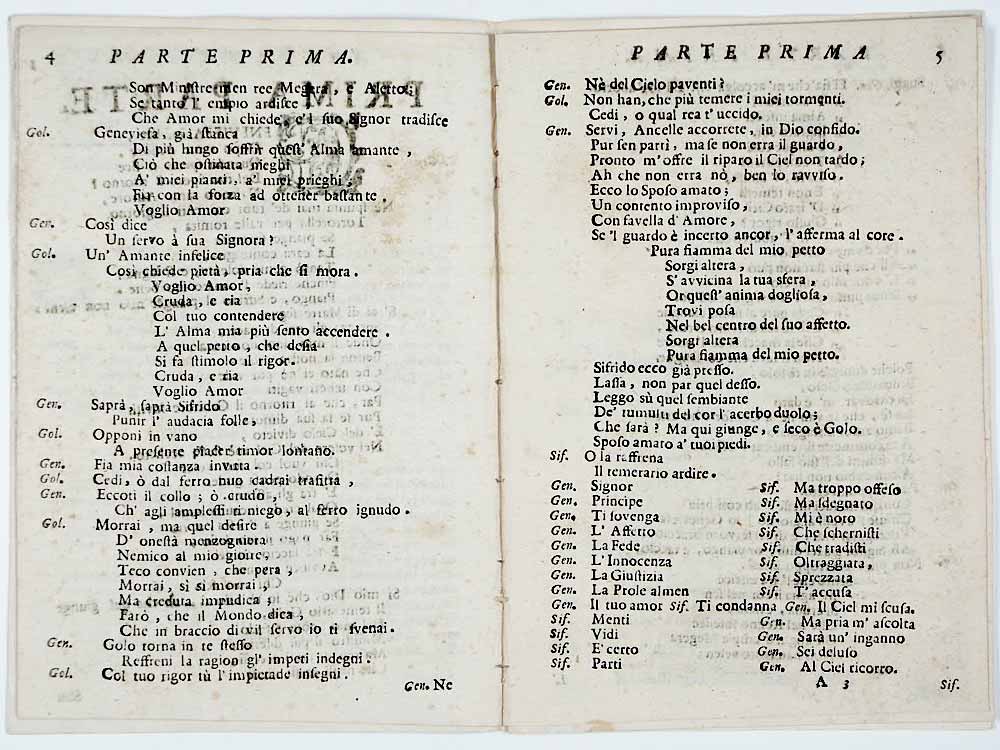 4 PARTE PRIMA.
Son Ministre men ree Megera, e Aletto;
Se tanto l' empio ardisce
Che Amor mi chiede, e'l suo Signor tradisce
Gol. Geneviefa, già stanca
Di più lungo soffrir quest' Alma amante,
Ciò che ostinata nieghi
A' miei pianti, a' miei prieghi,
Fia con la forza ad ottener bastante.
Voglio Amor
Gen. Così dice
Un servo à sua Signora?
Gol. Un' Amante infelice
Così chiede pietà, pria che si mora.
Voglio Amor,
Cruda, e ria
Col tuo contendere
L' Alma mia più sento accendere.
A quel petto, che desia
Si fa stimolo il rigor.
Cruda, e ria
Voglio Amor
Gen. Saprà, saprà Sifrido
Punir l' audacia folle,
Gol. Opponi in vano
A presente piacer timor lontano.
Gen. Fia mia costanza invitta.
Gol. Cedi, ò dal ferro nuo cadrai trafitta,
Gen. Eccoti il collo; ò crudo,
Ch' agli amplessi ti niego, al ferro ignudo.
Gol. Morrai, ma quel desire
D' onestà menzogniera
Nemico al mio gioire,
Teco convien, che pera,
Morrai, sì sì morrai,
Ma creduta impudica;
Farò, che il Mondo dica,
Che in braccio di vil servo io ti svenai.
Gen. Golo torna in te stesso
Reffreni la ragion gl' impeti indegni.
Gol. Col tuo rigor tù l' impietade insegni.
Gen. Ne
PARTE PRIMA 5
Gen. Nè del Cielo paventi?
Gol. Non han, che più temere i miei tormenti.
Cedi, o qual rea t' uccido.
Gen. Servi, Ancelle accorrete, in Dio confido.
Pur sen partì, ma se non erra il guardo,
Pronto m' offre il riparo il Ciel non tardo;
Ah che non erra nò, ben lo ravviso.
Ecco lo Sposo amato;
Un contento improviso,
Con favella d' Amore,
Se 'l guardo è incerto ancor, l' afferma al core.
Pura fiamma del mio petto
Sorgi altera,
S' avvicina la tua sfera,
Or quest' anima dogliosa,
Trovi posa
Nel bel centro del suo affetto.
Sorgi altera
Pura fiamma del mio petto.
Sifrido ecco già presso.
Lassa, non par quel desso.
Leggo sù quel sembiante
De' tumulti del cor l' acerbo duolo;
Che sarà? Ma qui giunge, e seco è Golo.
Sposo amato a' tuoi piedi.
Sif. O la raffrena
Il temerario ardire.
Gen. Signor Sif. Ma troppo offeso
Gen. Principe Sif. Ma sdegnato
Gen. Ti sovenga Sif. Mi è noto
Gen. L' Affetto Sif. Che schernisti
Gen. La Fede Sif. Che tradisti
Gen. L' Innocenza Sif. Oltraggiata,
Gen. La Giustizia Sif. Sprezzata
Gen. La Prole almen Sif. T' accusa
Gen. Il tuo amor Sif. Ti condanna Gen. Il Ciel mi scusa.
Sif. Menti Gen. Ma pria m' ascolta
Sif. Vidi Gen. Sarà un' inganno
Sif. E' certo Gen. Sei deluso
Sif. Parti Gen. Al Ciel ricorro.
A 3 Sif.